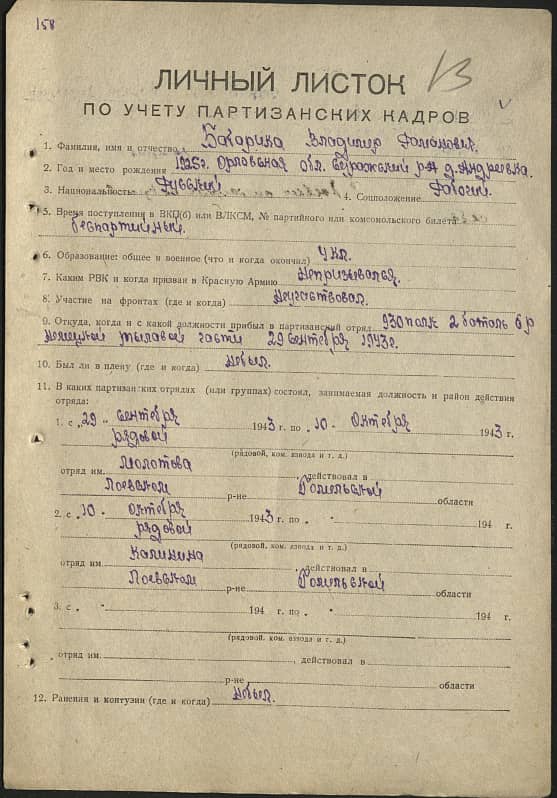 158
13
ЛИЧНЫЙ ЛИСТОК
ПО УЧЕТУ ПАРТИЗАНСКИХ КАДРОВ
1. Фамилия, имя и отчество Бакарика Владимир Романович.
2. Год и место рождения 1925г. Орловская обл. Суражский р-н д. Андреевка.
3. Национальность Русский 4. Соцположение Рабочий
5. Время поступления в ВКП(б) или ВЛКСМ, № партийного или комсомольского билета
беспартийный.
6. Образование: общее и военное (что и когда окончил) 4 кл.
7. Каким РВК и когда призван в Красную Армию Непризывался.
8. Участие на фронтах (где и когда) Неучаствовал.
9. Откуда, когда и с какой должности прибыл в партизанский отряд 930 полк 2 баталь
немецкой тыловой части 29 сентября 1943г.
10. Был ли в плену (где и когда) небыл.
11. В каких партизанских отрядах (или группах) состоял, занимаемая должность и район действия
отряда:
1. с „29" сентября 1943 г. по „10" октября 1943 г.
рядовой
(рядовой, ком. взвода и т. д.)
отряд им. Молотова, действовал в
Лоевском р-не Гомельской области
2. с „10" октября 1943 г. по „ " 194 г.
рядовой
(рядовой, ком. взвода и т. д.)
отряд им. Калинина, действовал в
Лоевском р-не Гомельской области
3. с „ " 194 г. по „ " 194 г.
(рядовой, ком. взвода и т. д.)
отряд им. , действовал в
р-не области
12. Ранения и контузии (где и когда) небыл.